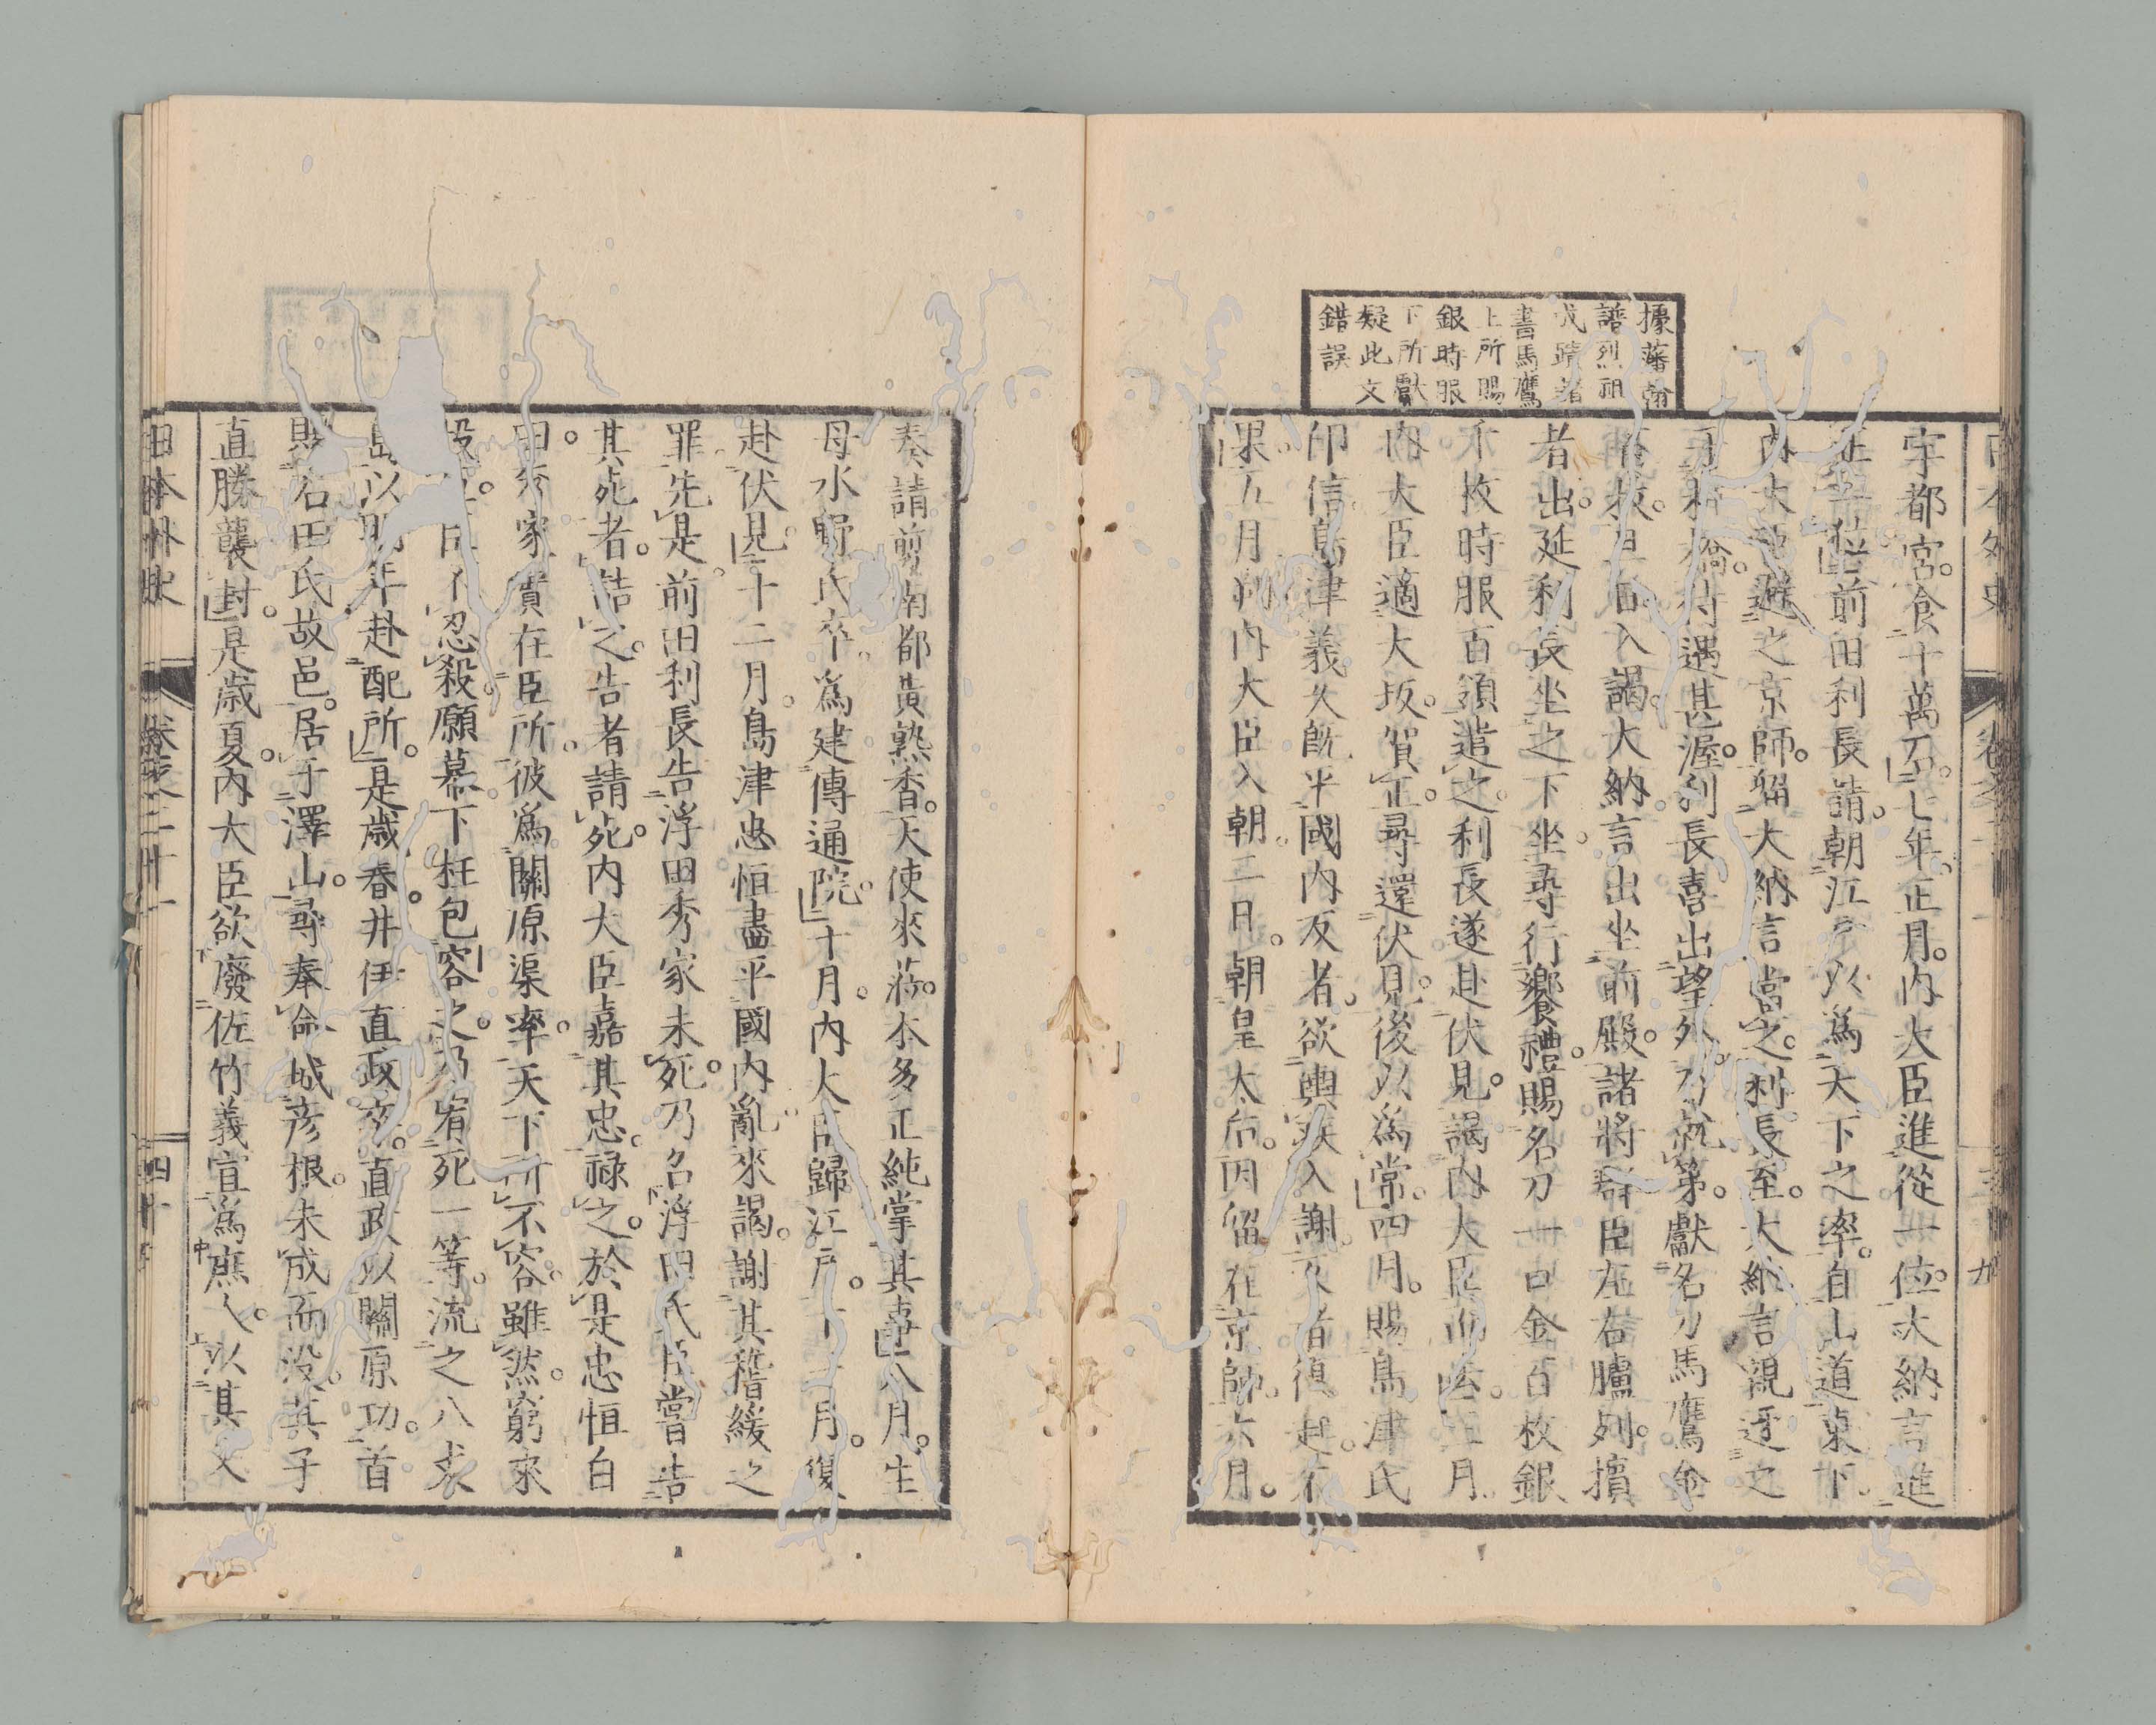 據藩翰
譜烈祖
成蹟者
書馬鷹
上所賜
銀時服
下所獻
疑此文
錯誤
宇都宮食十萬石七年正月內大臣進從一位大納言進
位前田利長請朝江戶以爲天下之率自山道東下
內大臣避之京師留大納言當之利長至大納言親迓之
橋待遇甚渥利長喜出望外乃就第獻名刀馬鷹金
枚入謁大納言出坐前殿諸將群臣左右臚列擯
者出延利長坐之下坐尋行饗禮賜名刀一口金百枚銀
千枚時服百領遣之利長遂赴伏見謁內大臣而去三月
內大臣適大坂賀正尋還伏見後以爲常四月賜島津氏
印信島津義久旣半國內反者欲輿疾入謝不者復起不
果五月內大臣入朝二日朝皇太后因留在京師六月
奏請前南都黃熟香天使來蒞本多正純掌其事八月生
母水野氏卒爲建傳通院十月內大臣歸江戶十一月復
赴伏見十二月島津忠恒盡平國內亂來謁謝其稽緩之
罪先是前田利長告浮田秀家未死乃召浮田氏臣嘗告
其死者詰之告者請死內大臣嘉其忠祿之於是忠恒白
曰秀家實在臣所彼爲關原渠率天下所不容雖然窮來
投臣不忍殺願幕下枉包容之乃宥死一等流之八丈
島以明年赴配所是歲春井伊直政卒直政以關原功首
賜石田氏故邑居于澤山尋奉命城彥根未成而沒其子
直勝襲封是歲夏內大臣欲廢佐竹義宣爲庶人以其父
日本外史
卷之二十一
四十